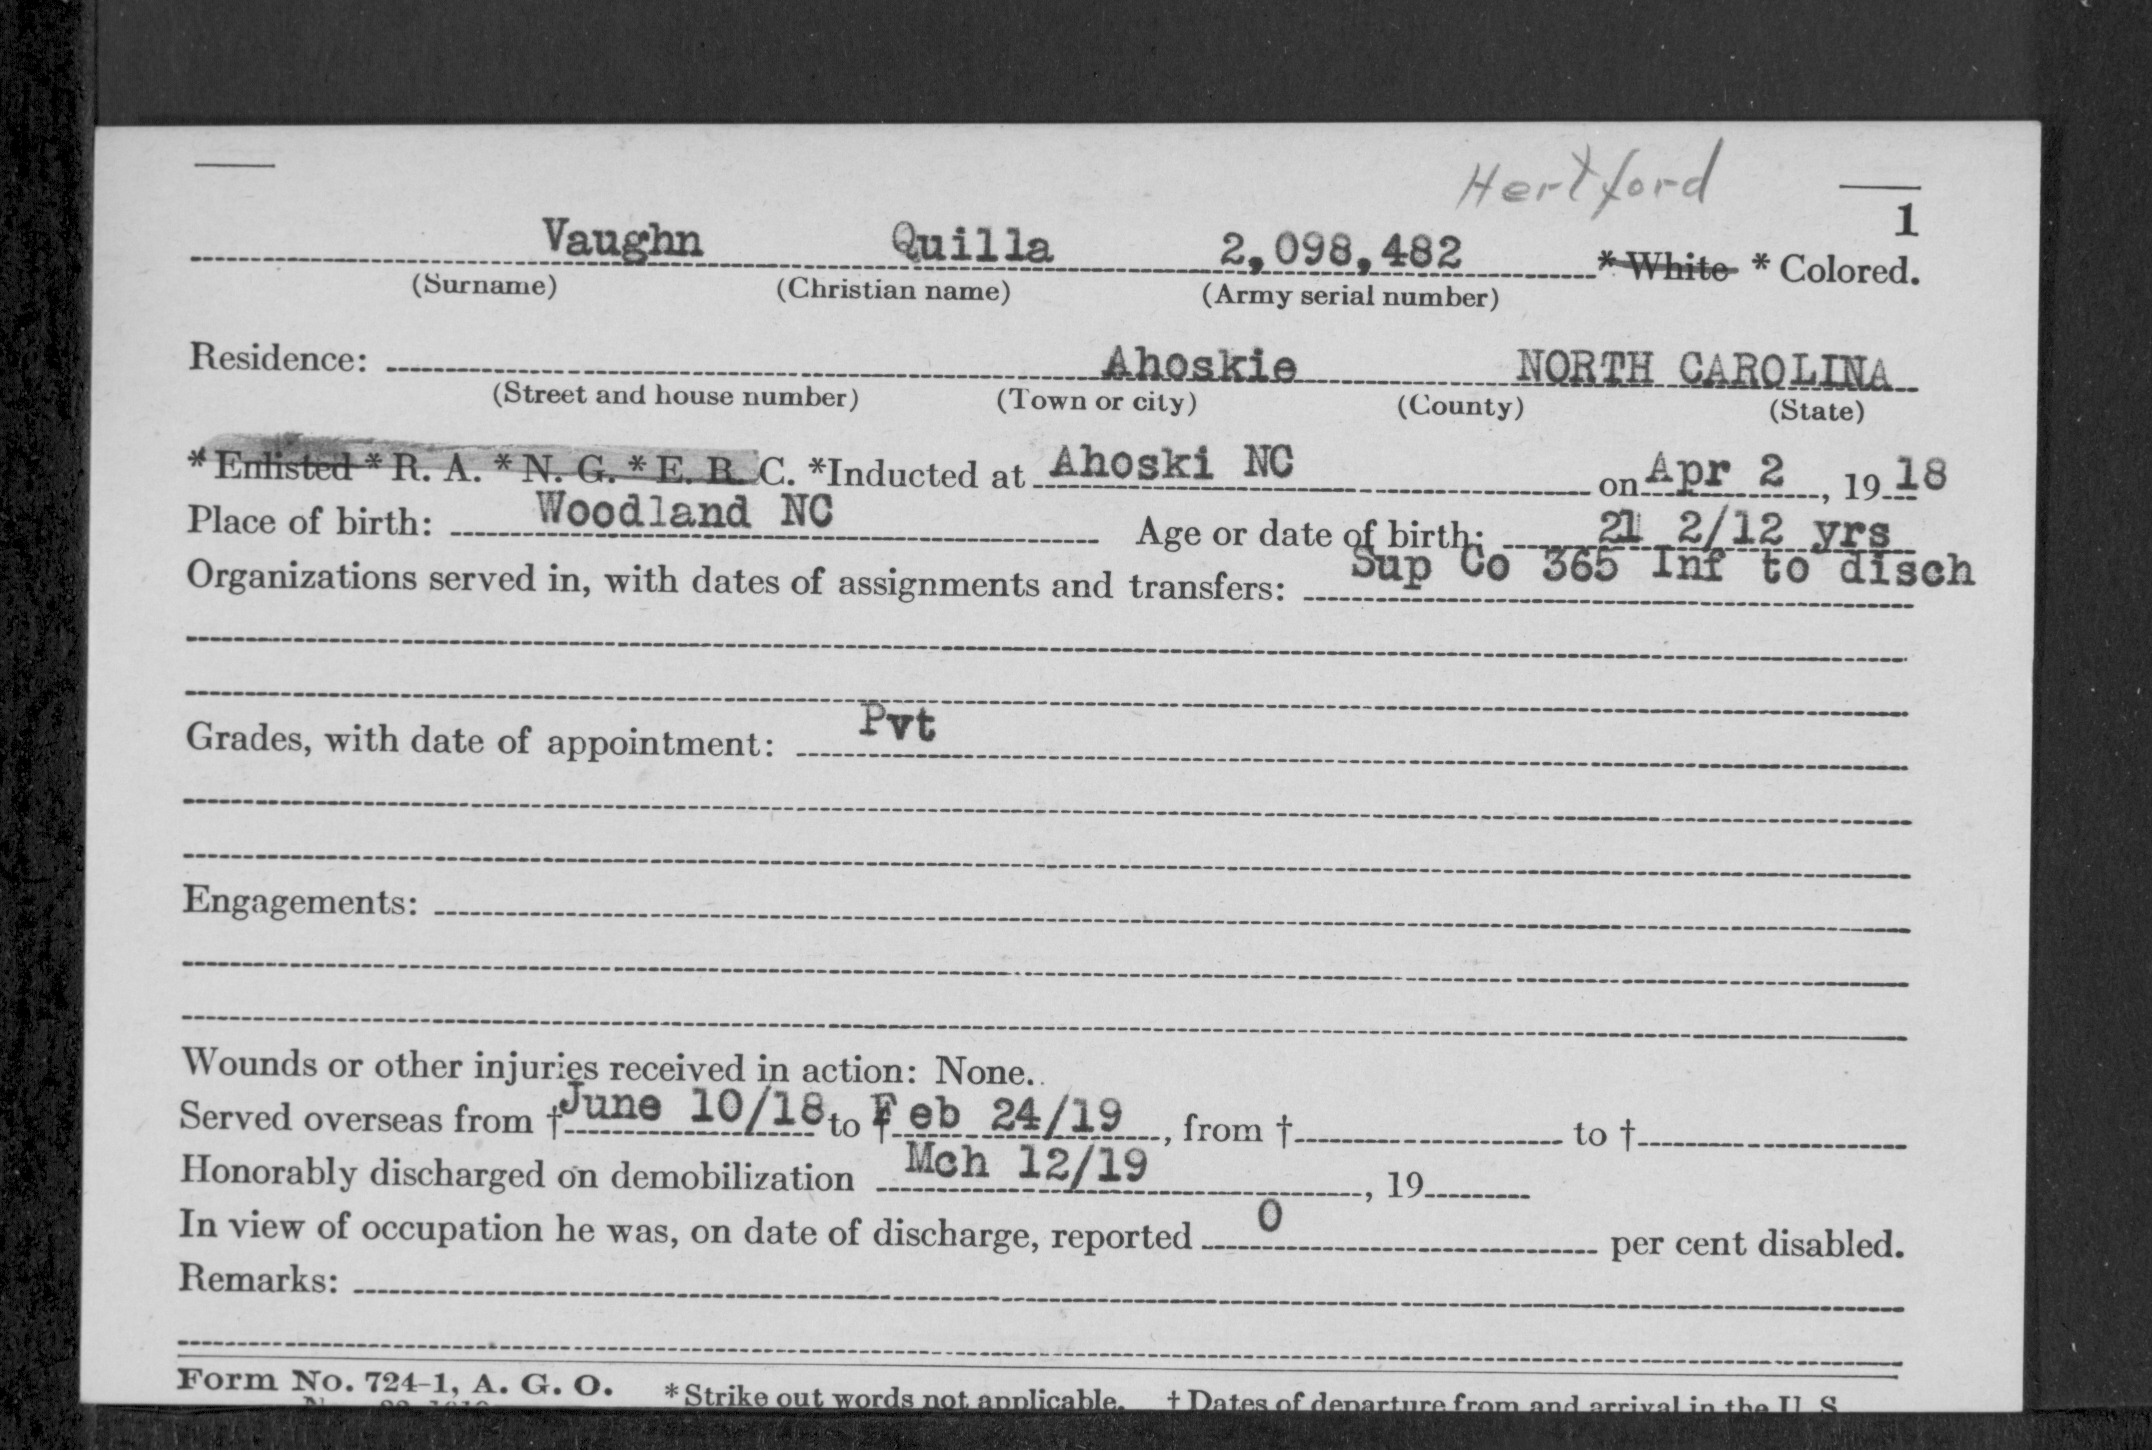 Hertford
1
Vaughn Quilla 2,098,482 * White * Colored.
(Surname) (Christian name) (Army serial number)
Residence: Ahoskie NORTH CAROLINA
(Street and house number) (Town or city) (County) (State)
* Enlisted * R. A. * N. G. * E. R. C. *Inducted at Ahoski NC on Apr 2, 19 18
Place of birth: Woodland NC Age or date of birth: 21 2/12 yrs
Organizations served in, with dates of assignments and transfers: Sup Co 365 Inf to disch
Grades, with date of appointment: Pvt
Engagements:
Wounds or other injuries received in action: None.
Served overseas from † June 10/18 to † Feb 24/19, from † to †
Honorably discharged on demobilization Mch 12/19, 19
In view of occupation he was, on date of discharge, reported 0 per cent disabled.
Remarks:
Form No. 724-1, A. G. O. * Strike out words not applicable. † Dates of departure from and arrival in the U. S.